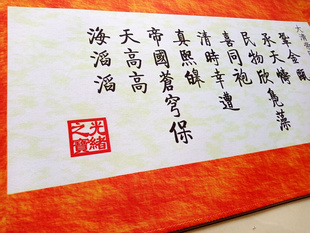 大清
鞏金甌
承天幬
民物欣鳧藻
喜同袍
清時幸遭
真熙皞
帝國蒼穹保
天高高
海滔滔
光緒
之寶